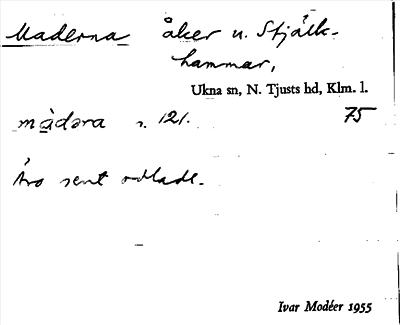 Maderna åker u. Stjälk-
hammar,
Ukna sn, N. Tjusts hd, Klm. l.
màdəra s. 121. 75
Äro sent odlade.
Ivar Modéer 1955